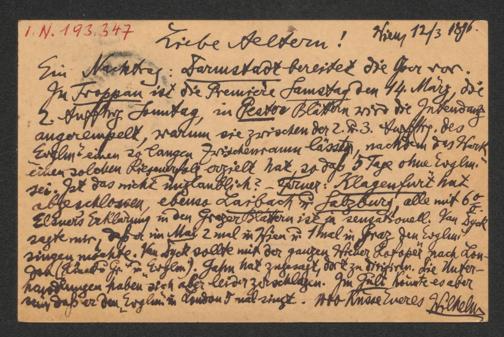 I. N. 193.347
Wien, 12/3 1896.
Liebe Aeltern!
Ein Nachtrag: Darmstadt bereitet die Oper vor.
In Troppau ist die Premiere Samstag den 14. März, die
2. Aufführg. Sonntag, in Pester Blättern wird die Intendanz
angerempelt, warum sie zwischen der 2. u. 3. Aufführg. des
Evglm. einen so langen Zwischenraum lässt, nachdem das Werk
einen solchen Riesenerfolg erzielt hat, so daß 5 Tage ohne Evglm.
sei. Ist das nicht unglaublich? – Ferner: Klagenfurt hat
abgeschlossen, ebenso Laibach u. Salzburg, alle mit 6%
Elsners Erklärung in den Grazer Blättern ist ja sensationell. Van Dyck
sagte mir, daß er im Mai 2 mal in Wien u. 1 mal in Graz den Evglm.
singen möchte. Van Dyck sollte mit der ganzen Wiener Hofoper nach Lon-
don Jahn hat zugesagt, dort zu dirigiren. Die Unter-
handlungen haben sich aber leider zerschlagen. Im Juli könnte es aber
sein daß er den Evglm in London 6 mal singt. 1000 Küsse Eueres Wilhelm